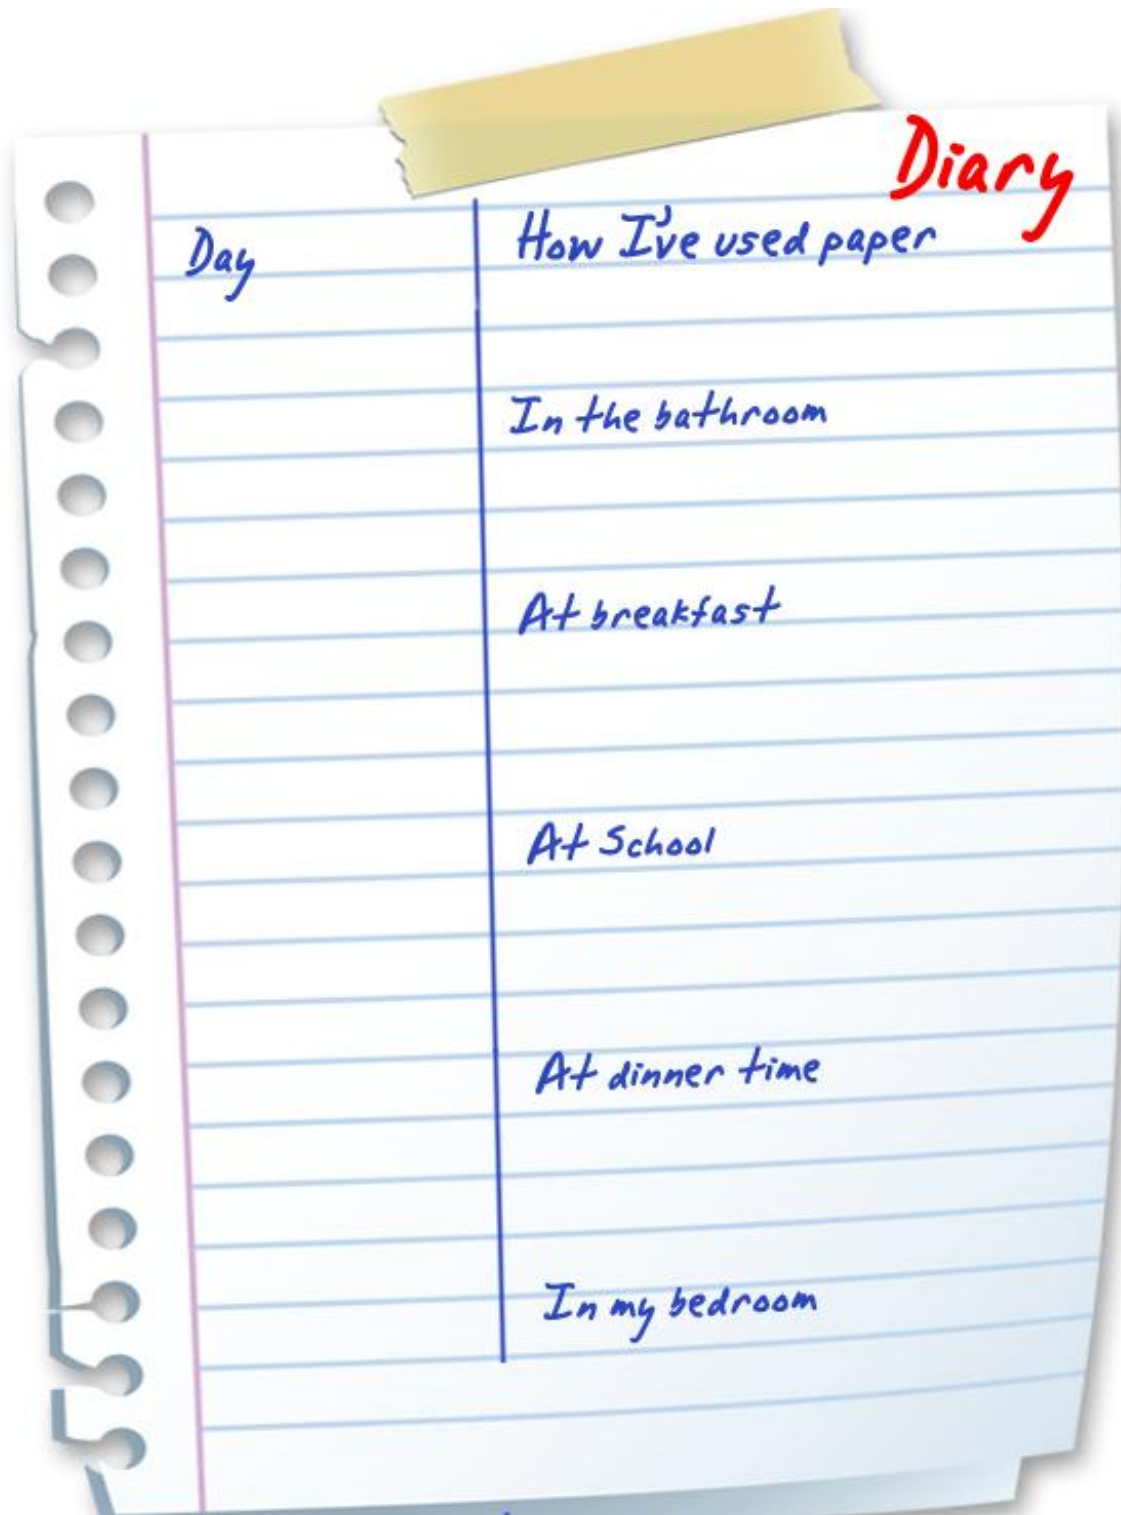 Diary
Day How I've used paper
In the bathroom
At breakfast
At School
At dinner time
In my bedroom